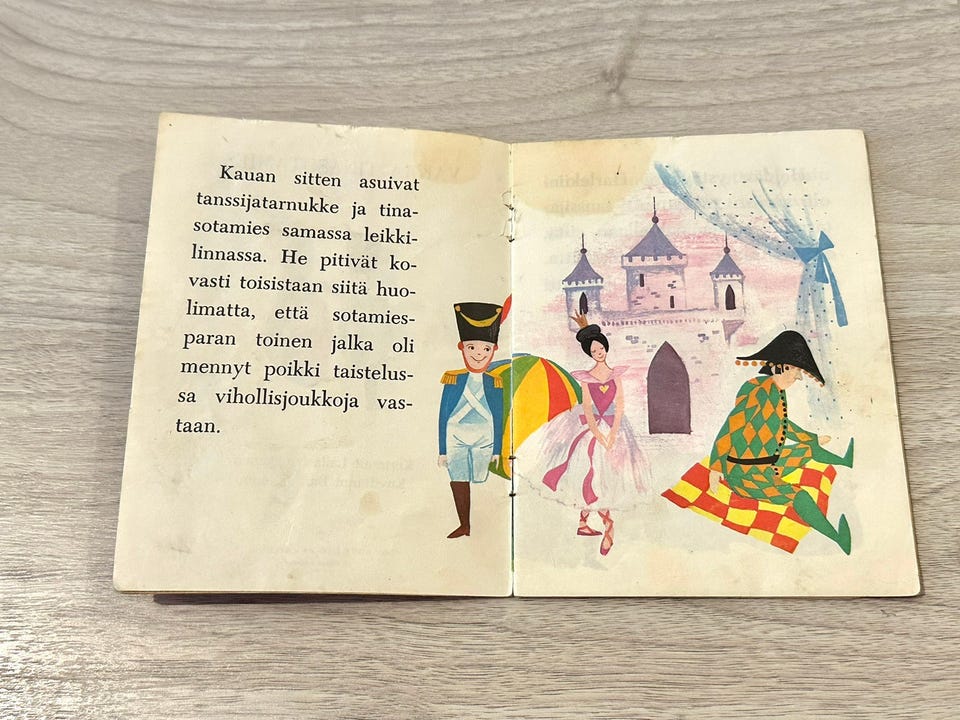 Kauan sitten asuivat
tanssijatarnukke ja tina-
sotamies samassa leikki-
linnassa. He pitivät ko-
vasti toisistaan siitä huo-
limatta, että sotamies-
paran toinen jalka oli
mennyt poikki taistelus-
sa vihollisjoukkoja vas-
taan.